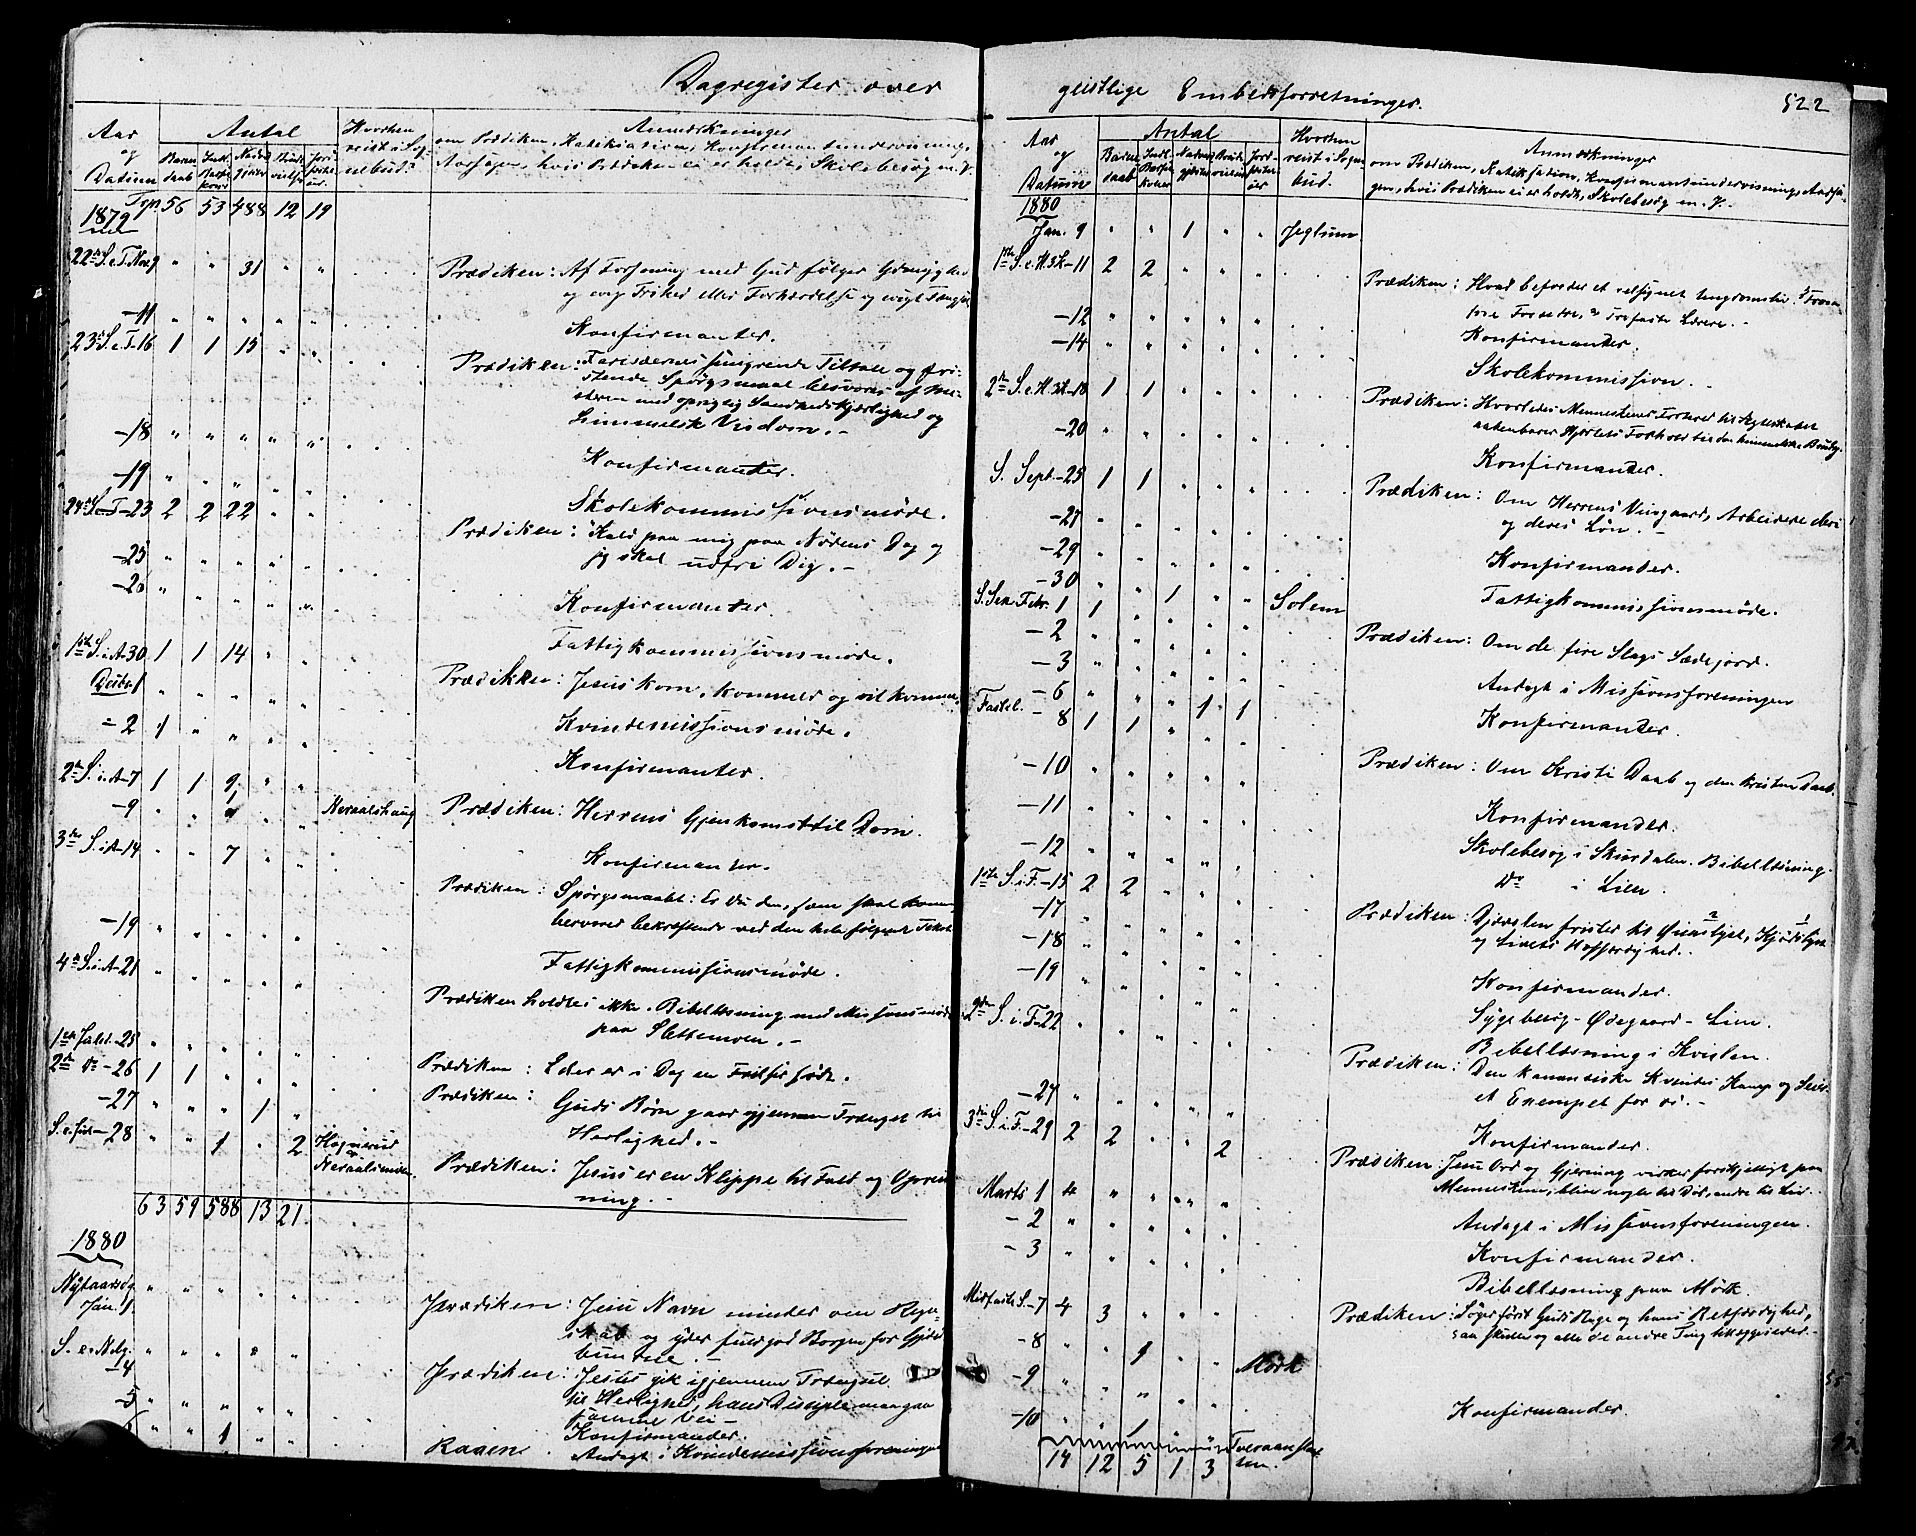 Dagregister over
Aar og Datum
Antal
Hvorhen reist i Sognebud?
Anmærkninger
om Prædiken, Katekisation, Konfirmantundervisning,
Aarsagen, hvis Prædiken ei er holdt, Skolebesøg m. V.
1879
56 53 488 12 19
22de S. e. T. Nov. 9 " " 31 " "
Prædiken: Af Forsoning med Gud følger
og evig Frihed eller Forhærdelse og evigt Fængsel
-11 " " " " "
Konfirmanter.
23de S. e. T. -16 1 1 15 " "
Prædiken: Farisæernes smigrende Tiltale og fri-
stende Spørgsmaal besvares af Me-
steren med oprigtig Sandhedskjærlighed og
himmelsk Visdom. -
-18 " " " " "
Konfirmanter.
-19 " " " " "
Skolekommissionsmøde.
24de S. e. T. -23 2 2 22 " "
Prædiken: Kald paa mig paa Nødens Dag og
jeg skal udfri Dig. -
-25 " " " " "
Konfirmanter.
-26 " " " " "
Fattigkommissionsmøde.
1ste S. i A. 30 1 1 14 " "
Prædiken: Jesus kom, kommer og vil komme.
Decbr. 1 " " " " "
Kvindemissionsmøde.
- 2 1 " " " "
Konfirmanter.
2den S. i A. -7 1 1 9 " "
Prædiken: Herrens Gjenkomst til Dom.
-9 " " 1 " " Neraalshaug
Konfirmanter.
3die S. i A. -14 " " 7 " "
Prædiken: Spørgsmaalet: Er Du den, som skal komme
besvares bekræftende ved den hele følgende Tekst
-19 " " " " "
Fattigkommissionsmøde.
4de S. i A. -21 " " " " "
Prædiken holdtes ikke. Bibellæsning med Missionsmøde
paa Slettemoen. -
1ste Juled. -25 " " " " "
Prædiken: Eder er i Dag en Frelser føde.
2den Do -26 1 1 " " "
Prædiken: Guds Børn gaar gjennem Trængsel til
Herlighed. -
-27 " " " 1 "
S. e. Jul -28 " " 1 " 2 Hognerud og Neraalsmoen
Prædiken: Jesus er en Klippe til Fald og Oprei-
ning. -
63 59 588 13 21.
1880
Nytaarsdg. Jan. 1 " " " " "
Prædiken: Jesu Navn minder om
skab og yder fuldgod Borgen for
S. e. Nytg. -4 " " " " "
Prædiken: Jesus gik igjennem Trængsel
til Herlighed, hans Disciple maa gaa
samme Vei -
-5 " " " " "
Konfirmander.
-6 " " 1 " " Raaen
Andagt i Kvindemissionsforeningen
geistlige Embedsforretninger.
522
Aar og Datum
Antal
Hvorhen reist i Sognebud.
Anmærkninger
om Prædiken, Kateksation, Konfirmantundervisning, Aarsa-
gen, hvis Prædiken ei er holdt, Skolebesøg m. V.
1880
Jan. 9 " " 1 " " Jeglum
1ste S. e. H. 3 K. -11 2 2 " " "
Prædiken: Hvad befordrer et velsignet Ungdomsliv?
Konfirmander.
-12 " " " " "
-14 " " " " "
Skolekommission. -
2den S. e. H. 3 K. -18 1 1 " " "
Prædiken: Hvorledes Menneskenes Forhold til
aabenbarer Hjertets Forhold til den himmelske
-20 " " " " "
Konfirmander.
S. Sept. -25 1 1 " " "
Prædiken: Om Herrens Viingaard, Arbeidere deri
og deres Løn. -
-27 " " " " "
Konfirmander.
-29 " " " " "
Fattigkommissionsmøde.
-30 " " 1 " " Solem
S. Sex. Febr. 1 1 " " " "
Prædiken: Om de fire Slags Sædejord.
- 2 " " " " "
Andagt i Missionsforeningen
- 3 " " " " "
Konfirmander.
- 6 " " " 1 1
Fastel. - 8 1 1 " " "
Prædiken: Om Kristi Daab og den kristne Daab.
-10 " " " " "
Konfirmander.
-11 " " " " "
Skolebesøg i Skurdalen. Bibellæsning.
-12 " " " " "
Do i Lien.
1ste S. i F. -15 2 2 " " "
Prædiken: Djævelen frister til Øienslyst, Kjødslyst
og Livets Hoffærdighed.
-17 " " " " "
Konfirmander.
-18 " " " " "
Sygebesøg - Ødegaard - Lien.
-19 " " " " "
Bibellæsning i Kvislen.
2den S. i F. -22 " " " " "
Prædiken: Den kananæiske Kvindes Kamp og Seier
et Exempel for os. -
-24 " " " " "
Konfirmander.
3die S. i F. -29 2 2 " " 2
Prædiken: Jesu Ord og Gjerning virker forskjelligt paa
Menneskene, blive nogle til Død, andre til Liv.
Marts 1 4 " " " "
Andagt i Missionsforeningen.
- 2 " " " " "
Konfirmander.
- 3 " " " " "
Bibellæsning paa Mørk.
Midfaste S. -7 4 3 " " "
Prædiken: Søger først Guds Rige og hans Retfærdighed,
saa skulle og alle de andre Ting tillægges eder -
-8 " " 1 " " Mørk
-9 " " " " "
Konfirmander.
-10 " " 1 " "
14 12 5 1 3